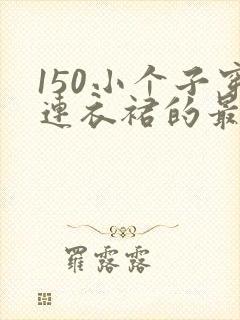 150小个子穿
连衣裙的最
罗露露